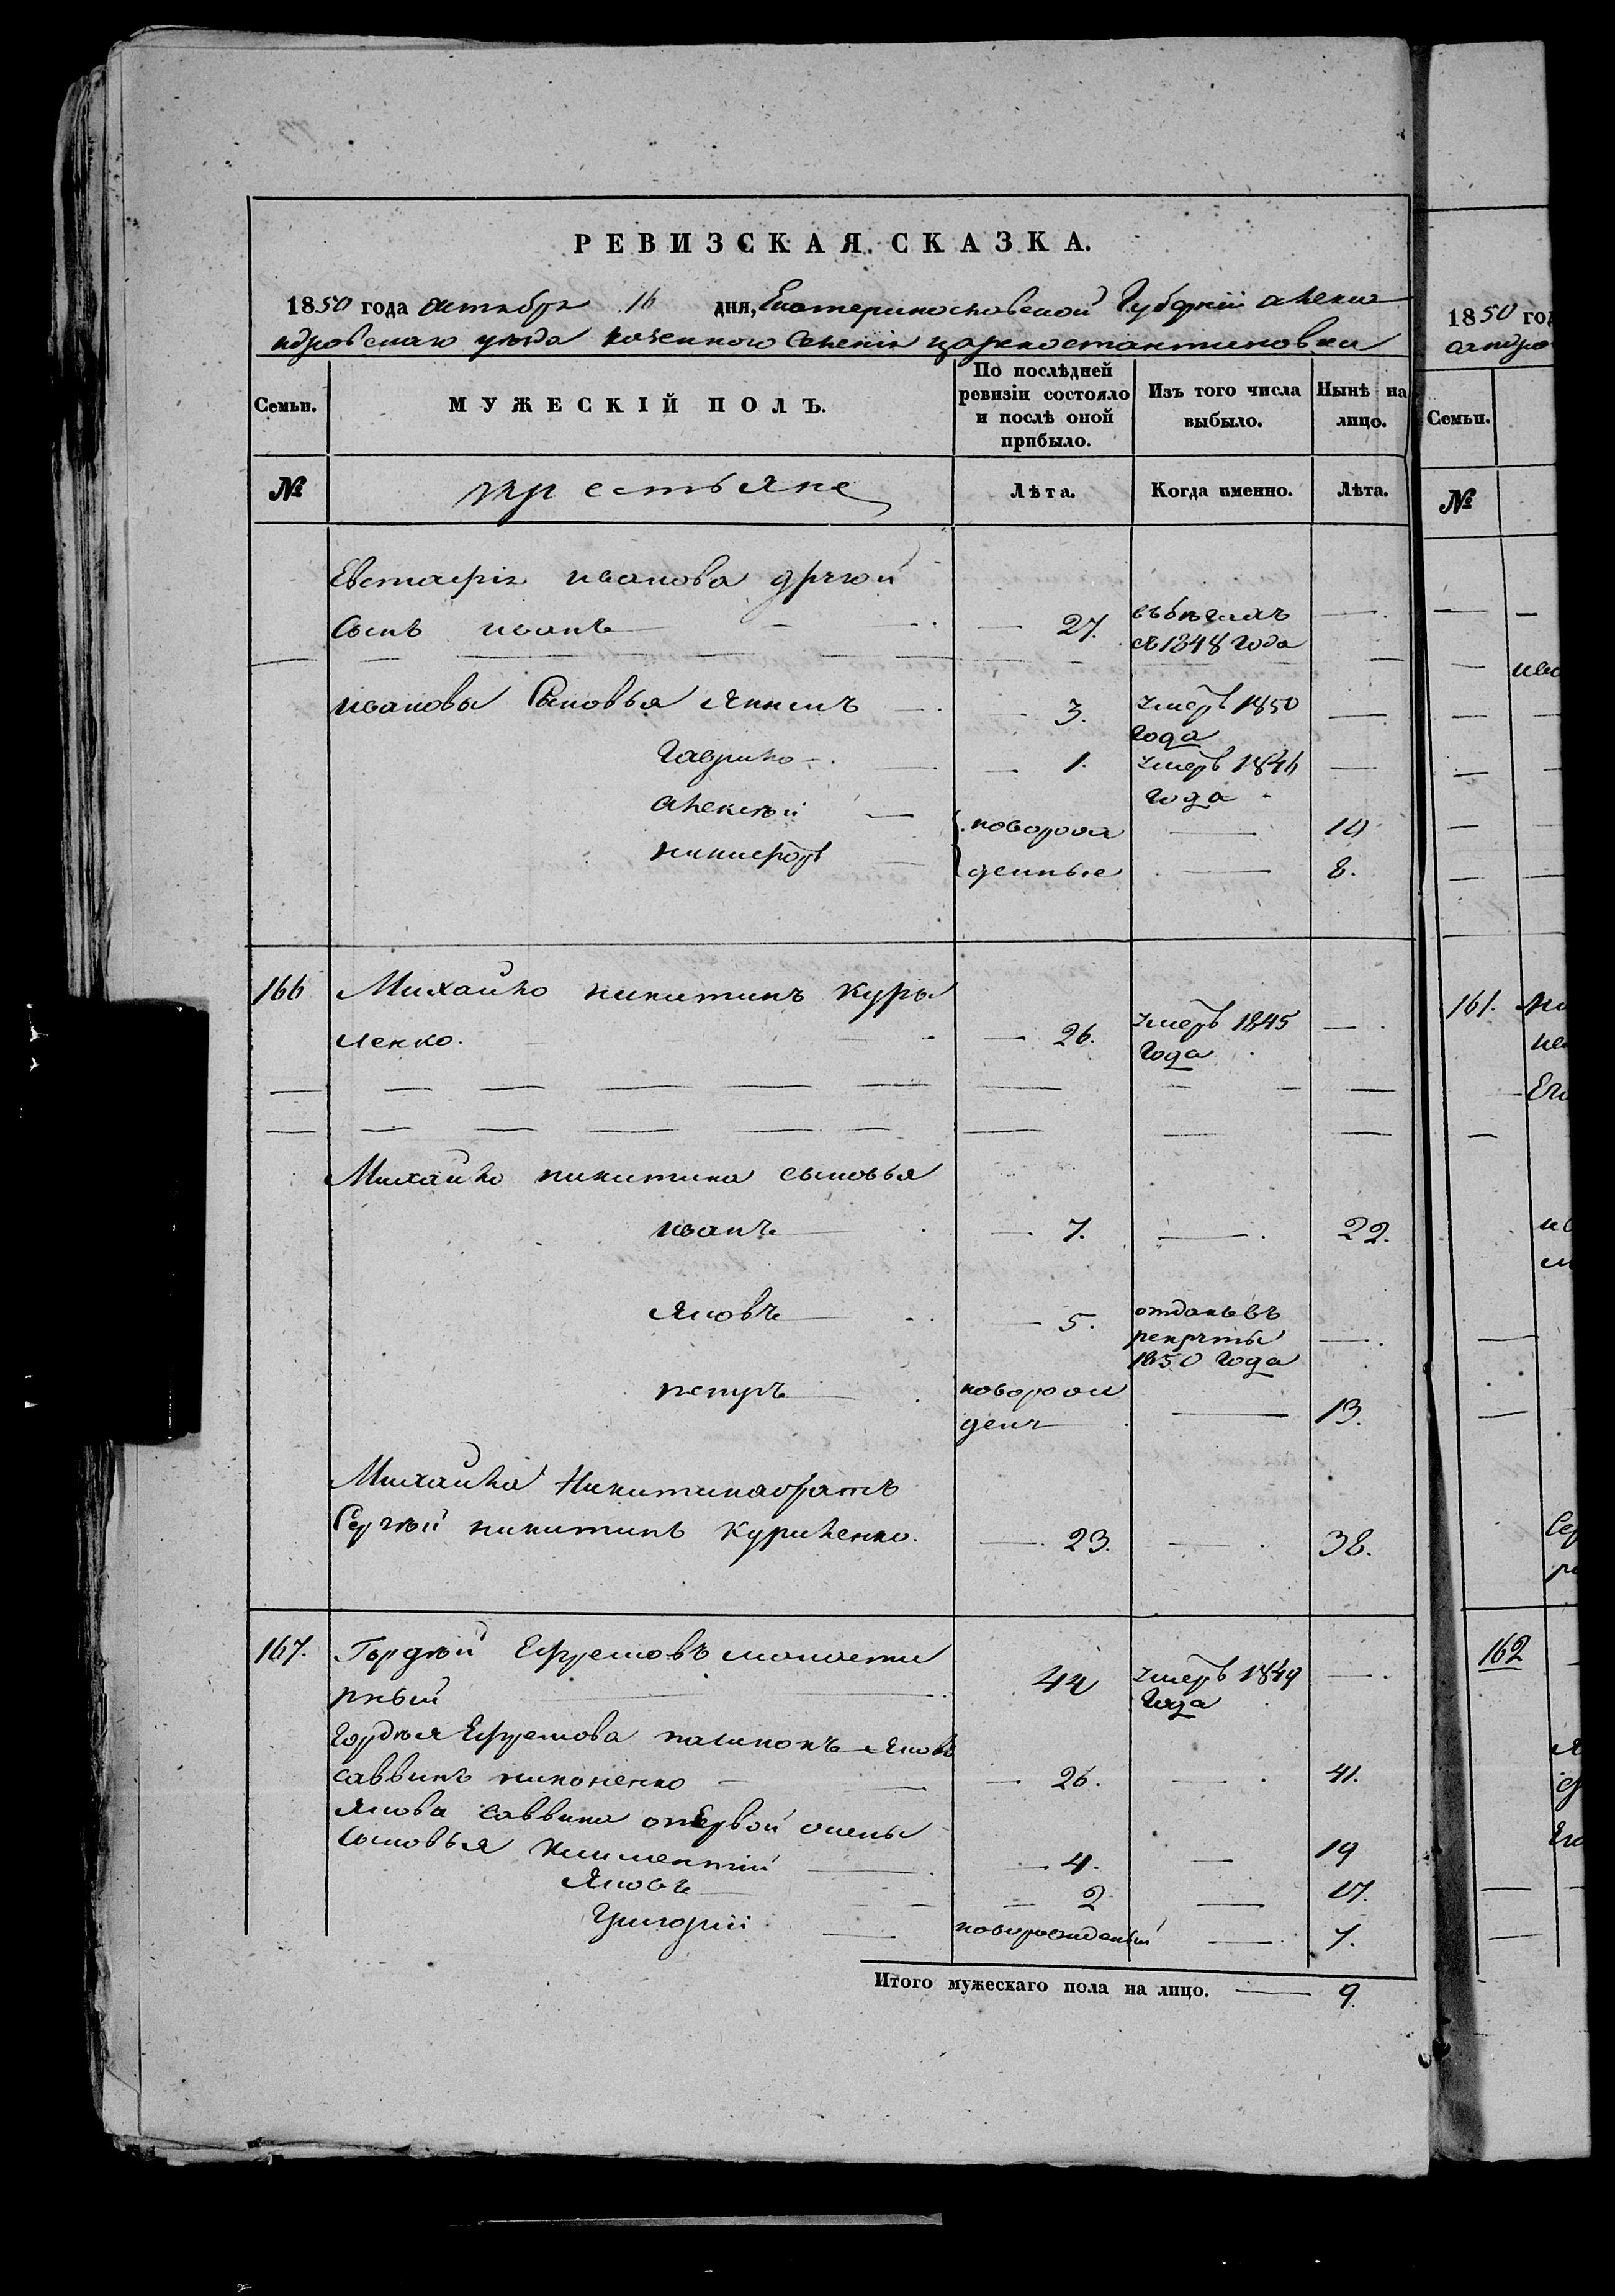 РЕВИЗСКАЯ СКАЗКА.
1850 года октября 16 дня, Екатеринославской Губернiи алекса
ндровскаго уѣзда казенного Селенiя царекостантиновки
Семьи.
МУЖЕСКIЙ ПОЛЪ.
По послѣдней ревизiи состояло и послѣ оной прибыло.
Изъ того числа выбыло.
Нынѣ на лицо.
№ крестьяне Лѣта. Когда именно. Лѣта.
Евстафiя иванова другой
Сынъ иванъ 27. въ бѣгахъ съ 1848 года
ивановы Сыновья Якимъ 3. умеръ 1850 года
Гаврило 1. умеръ 1846 года
алексѣй новорож 10
никифоръ денные 8.
166 Михайло никитинъ Куры
ленко. 26. умеръ 1845 года
Михайло никитина сыновья
иванъ 7. 22.
Яковъ 5. отданъ въ рекруты 1850 года
петръ новорож денъ 13.
Михайла Никитина братъ
Сергѣй никитинъ Куриленко. 23. 38.
167. Гордѣй Ефремовъ монасти
рный 44 умеръ 1849 года
Гордѣя Ефремова Яковъ
саввинъ 26. 41.
Якова саввина отпервой жены
Сыновья климентiй 4. 19
Яковъ 2 17.
Григорiй новорожденный 7.
Итого мужескаго пола на лицо. 9.
1850 год
Семьи.
№
161.
162